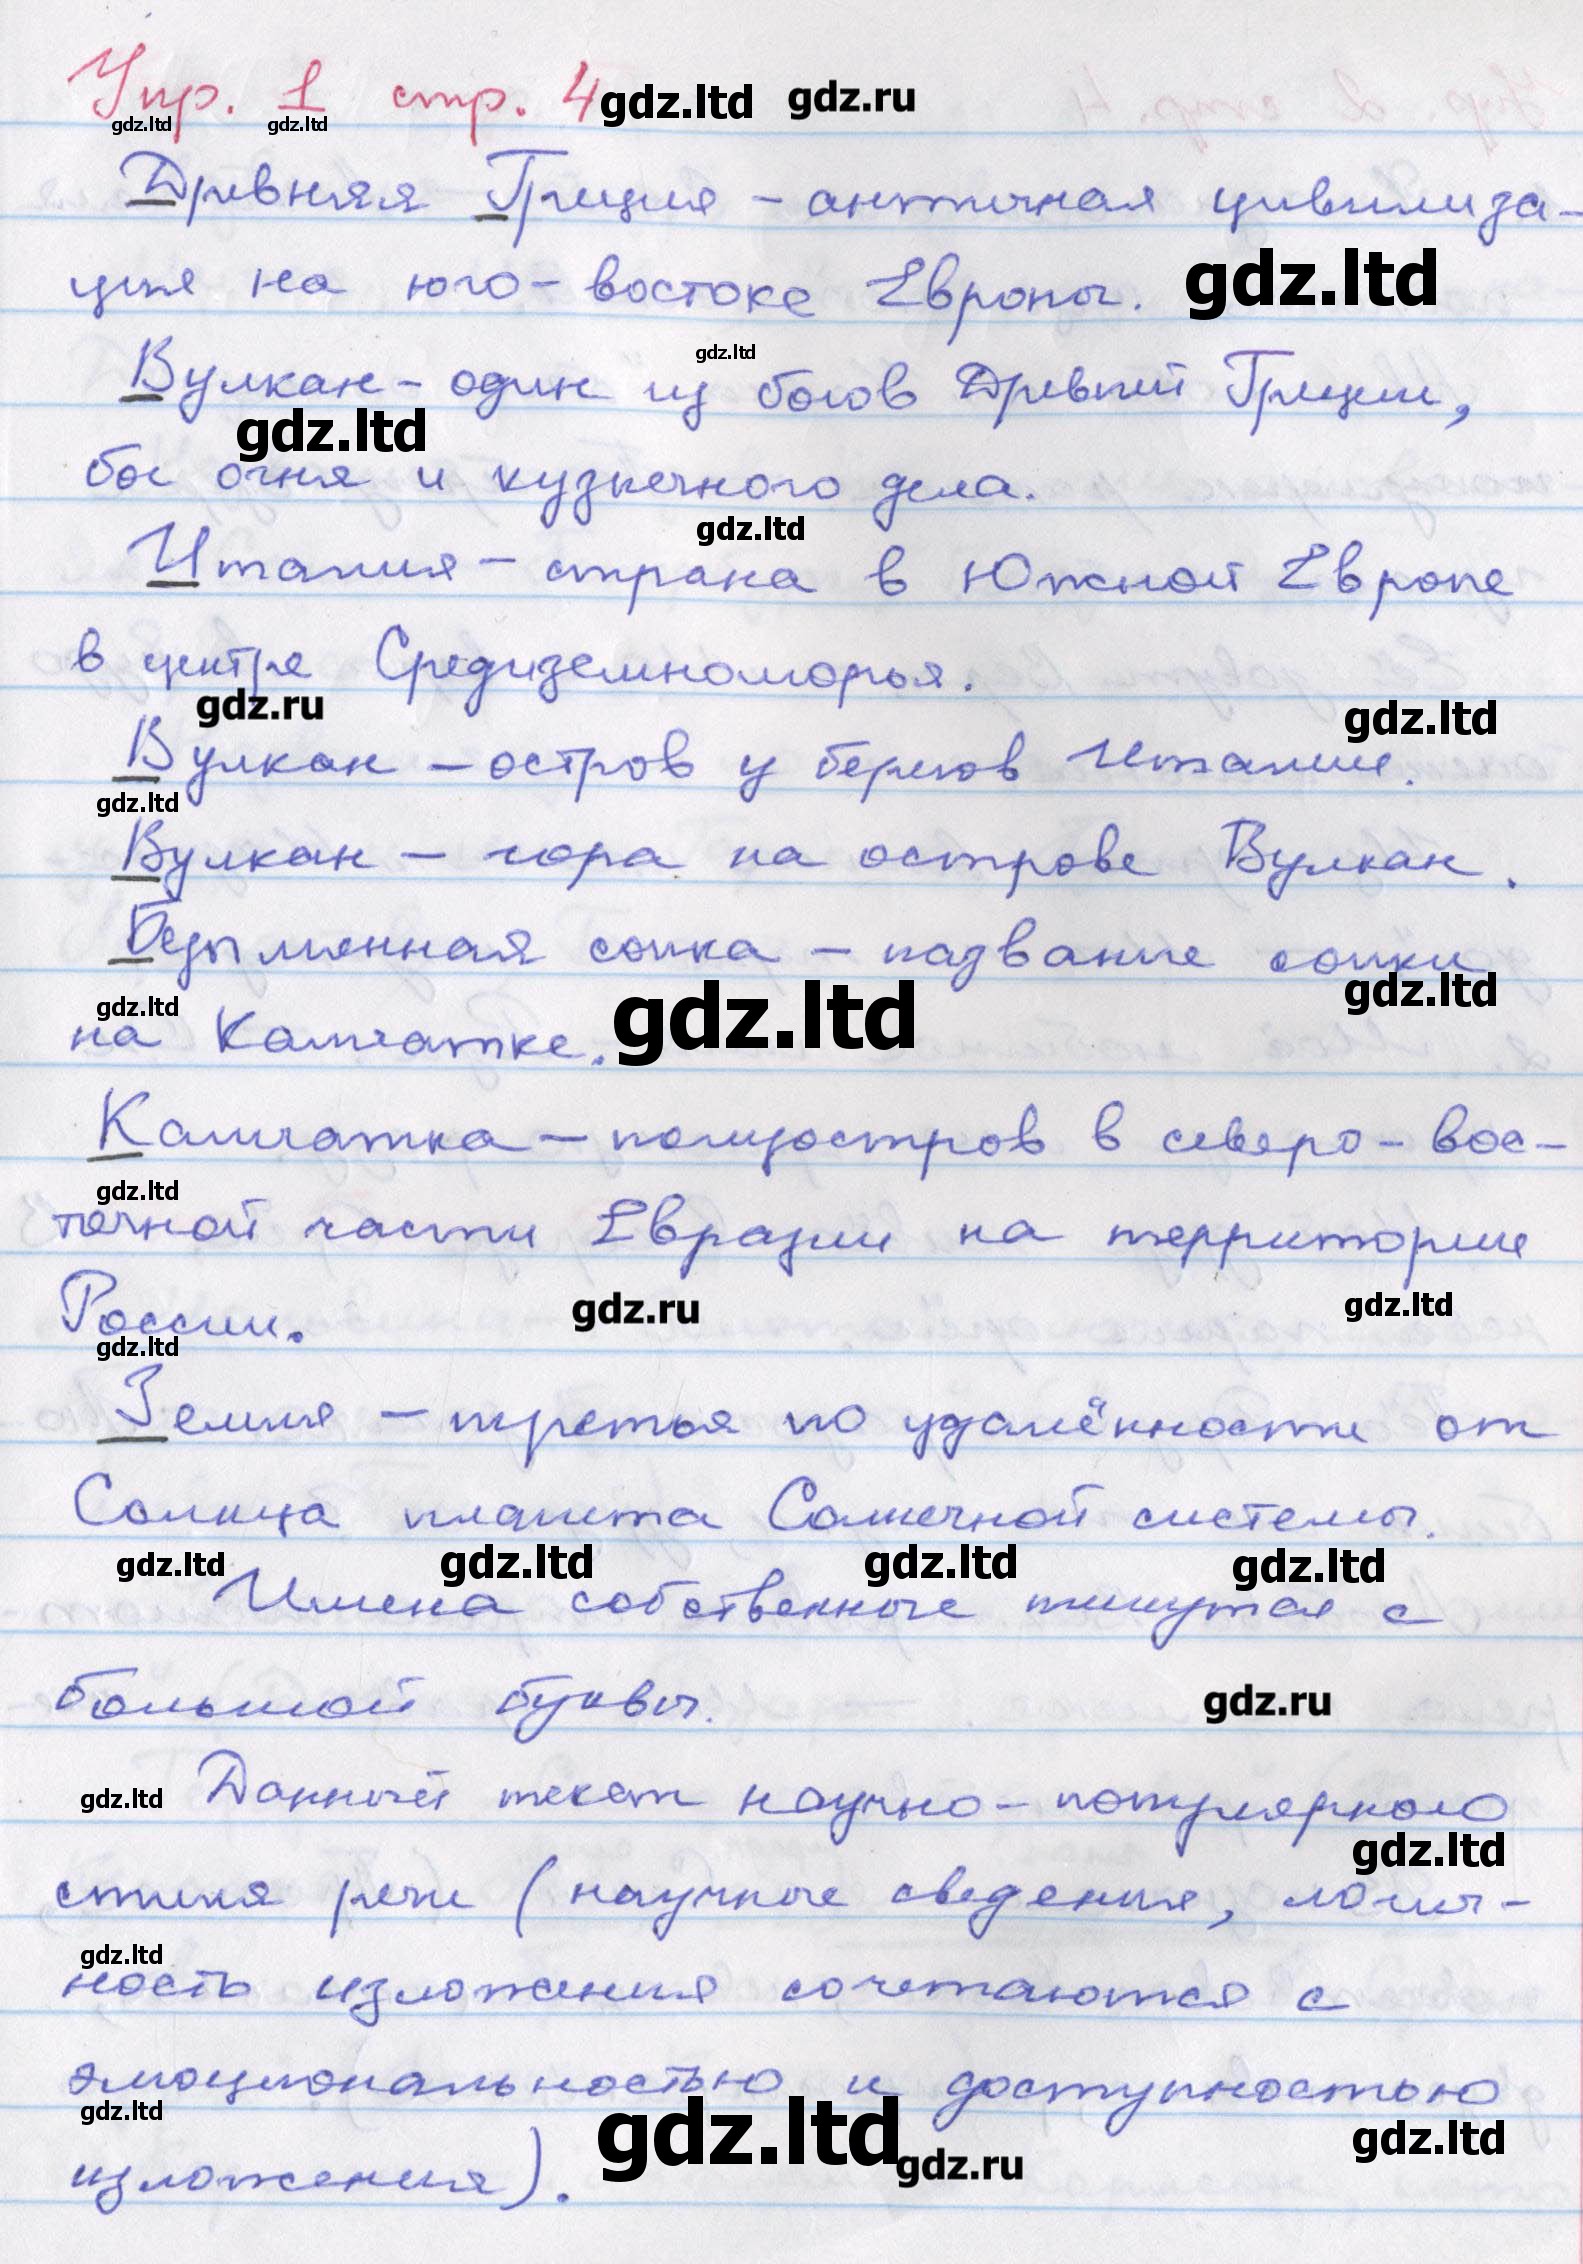 Упр. 1 стр. 4 gdz.ltd gdz.ru
gdz.ltd gdz.ltd
Древняя Греция – античная цивилиза-
ция на юго-востоке Европы. gdz.ltd
gdz.ltd
Вулкан – один из богов Древней Греции,
gdz.ltd
бог огня и кузнечного дела.
gdz.ltd
Италия – страна в Южной Европе
в центре Средиземноморья.
gdz.ru gdz.ltd
Вулкан – остров у берегов Италии.
gdz.ltd
Вулкан – гора на острове Вулкан.
Безымянная сопка – название сопки
gdz.ltd gdz.ltd gdz.ltd
на Камчатке.
Камчатка – полуостров в северо-вос-
gdz.ltd
точной части Евразии на территории
gdz.ru gdz.ltd
России.
gdz.ltd
Земля – третья по удалённости от
Солнца планета Солнечной системы.
gdz.ltd gdz.ltd gdz.ltd gdz.ltd
Имена собственные пишутся с
большой буквы. gdz.ru
gdz.ltd Данный текст научно-популярного
gdz.ltd
стиля речи (научные сведения, логич-
gdz.ltd
ность изложения сочетаются с
эмоциональностью и доступностью
gdz.ltd gdz.ltd gdz.ru gdz.ltd
изложения).